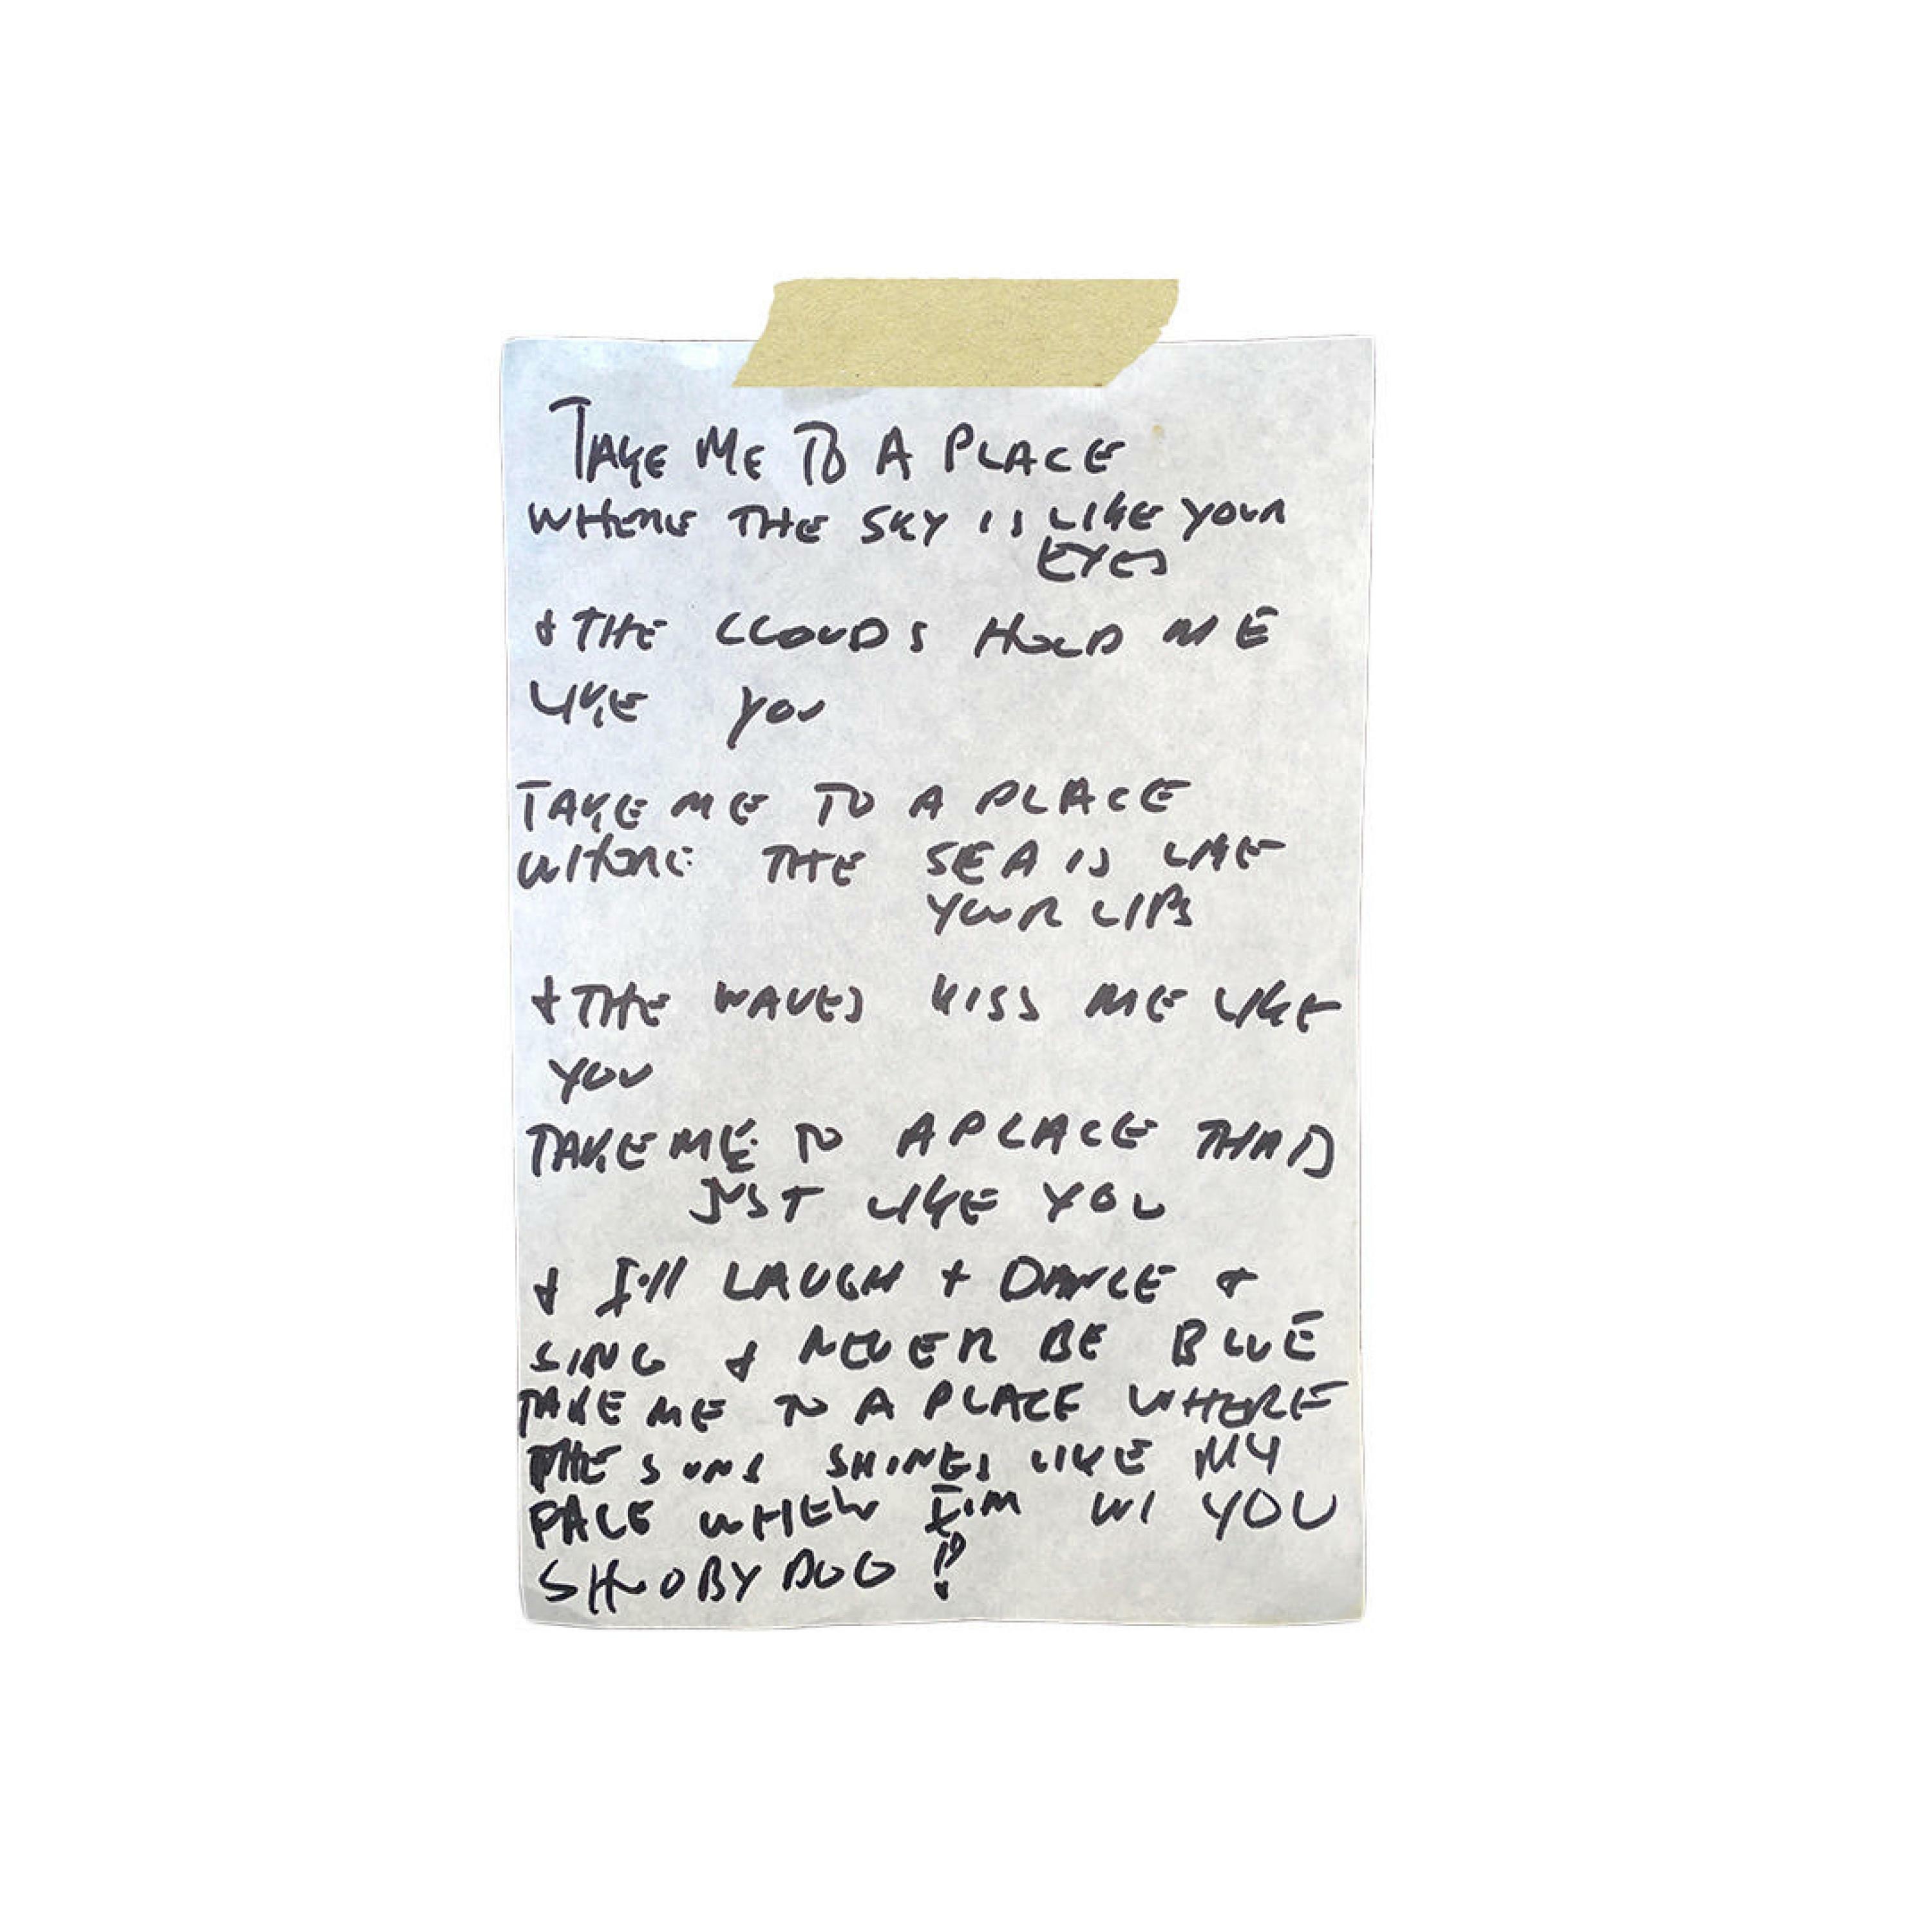 TAKE ME TO A PLACE
WHERE THE SKY IS LIKE YOUR
EYES
& THE CLOUDS HOLD ME
LIKE YOU
TAKE ME TO A PLACE
WHERE THE SEA IS LIKE
YOUR LIPS
& THE WAVES KISS ME LIKE
YOU
TAKE ME TO A PLACE THAT IS
JUST LIKE YOU
& I'll LAUGH + DANCE &
SING & NEVER BE BLUE
TAKE ME TO A PLACE WHERE
THE SUNS SHINES LIKE MY
FACE WHEN I'M WI YOU
SHOOBY DOO !?